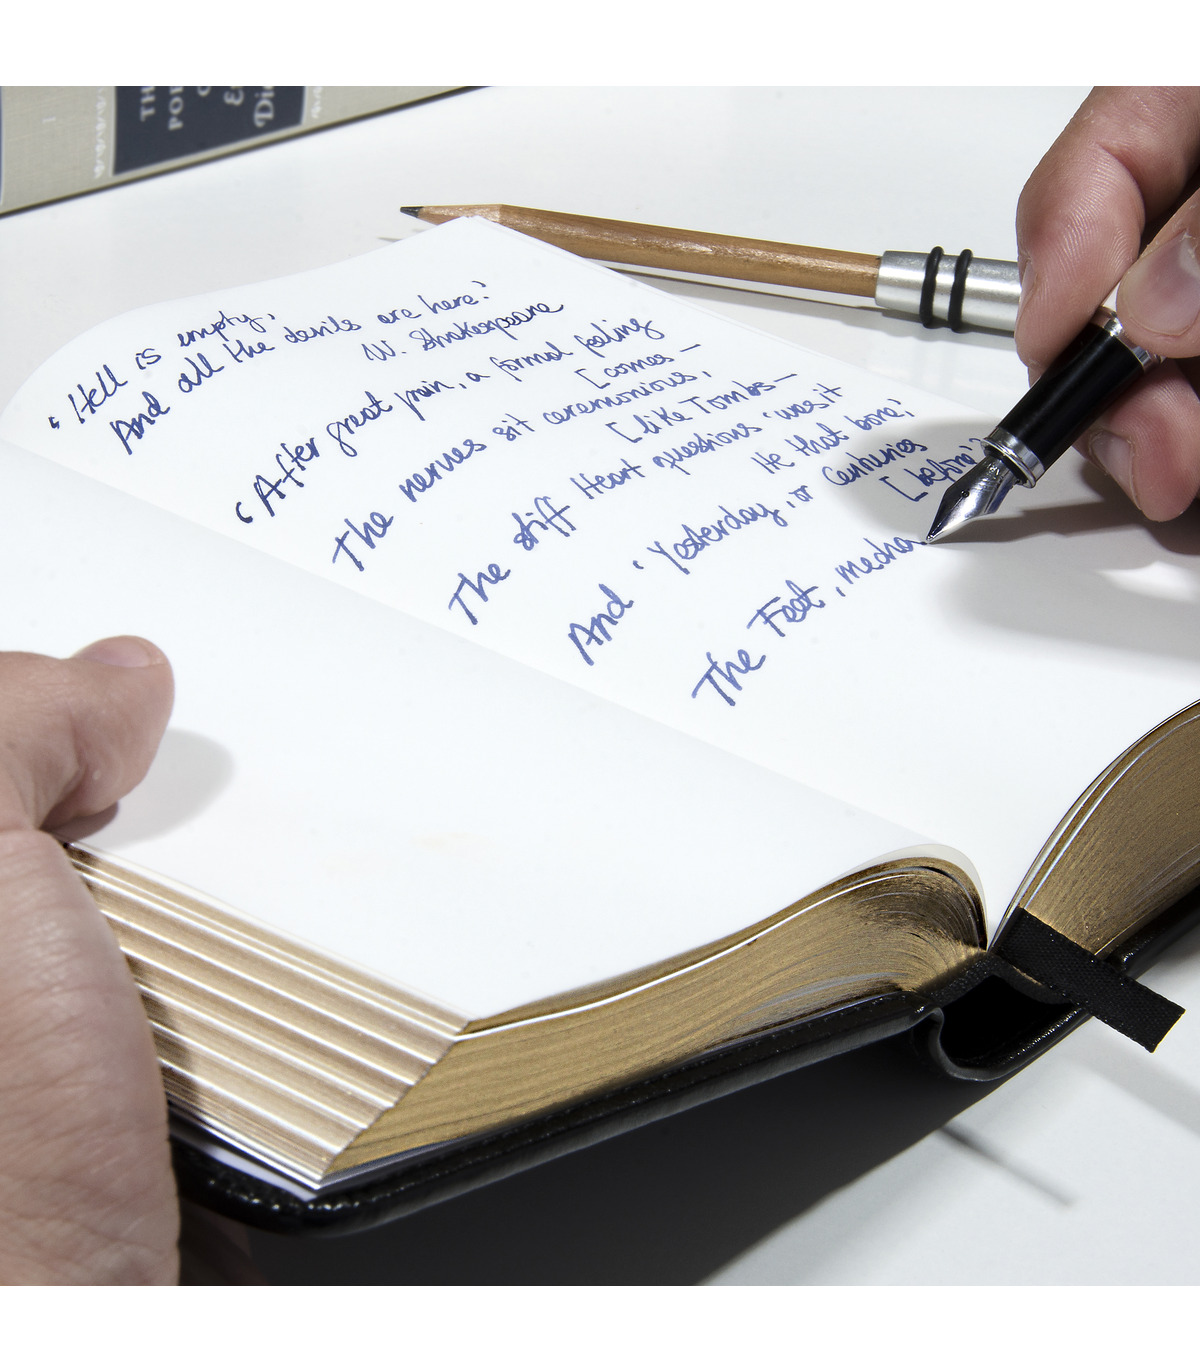 TH
POE
O
Em
Dic
'Hell is empty,
And all the devils are here.'
W. Shakespeare
'After great pain, a formal feeling
[comes —
The nerves sit ceremonious,
[like Tombs —
The stiff Heart questions 'was it
He that bore,'
And 'Yesterday, or Centuries
[before'?
The Feet, mecha